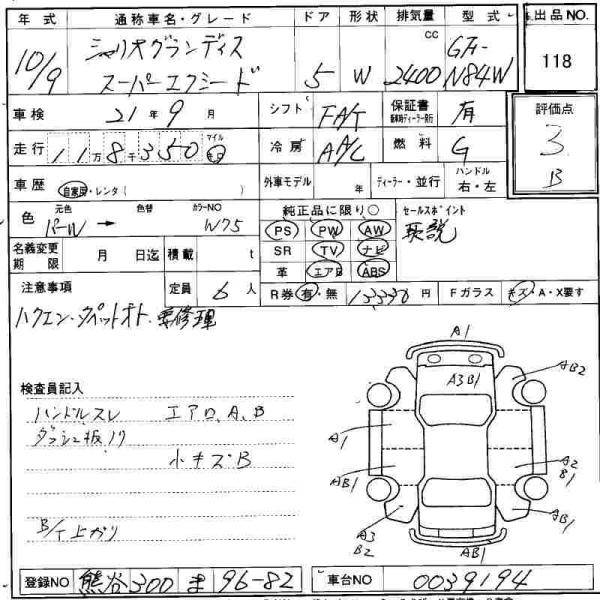 年式 通称車名・グレード ドア 形状 排気量 型式 出品NO.
10/9 シャリオグランディス スーパーエクシード 5 W 2400 CC GF-N84W 118
車検 21年9月 シフト FA/T 保証書 有
評価点 3 B
走行 11万8千350 マイル 冷房 AA/C 燃料 G
車歴 自家用・レンタ( ) 外車モデル 年 ディーラー・並行 ハンドル 右・左
色 元色 パーW → 色替 カラーNO W75
純正品に限り○ セールスポイント
PS PW AW 取説
SR TV ナビ
革 エアB ABS
名義変更期限 月 日迄 積載 t
注意事項 定員 6人 R券 有・無 13330円 Fガラス キズ・A・X要す
ハクエン・タペットオト・要修理
A1
A3B1
AB2
A1
A2 B1
AB1
A3 B2
AB1
AB1
検査員記入
ハンドルスレ エアロ、A、B
ダッシュ板ノリ
小キズB
B/T上がり
登録NO 熊谷 300 ま 96-82 車台NO 0039194